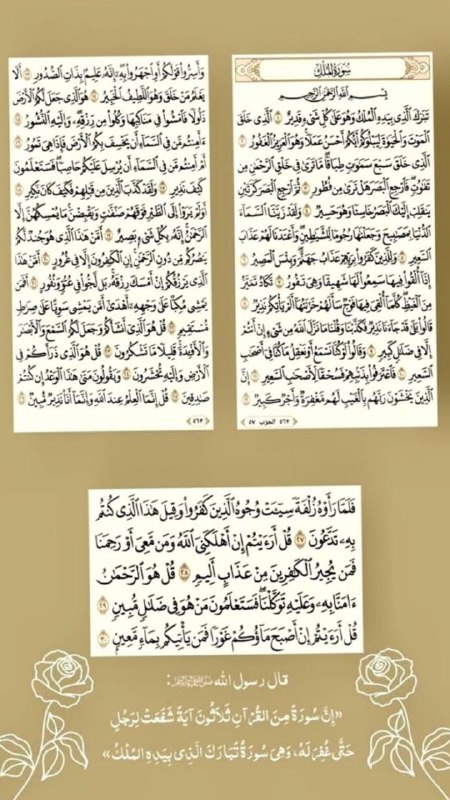 سُورَةُ المُلْكِ
بِسْمِ ٱللَّهِ ٱلرَّحْمَٰنِ ٱلرَّحِيمِ
تَبَٰرَكَ ٱلَّذِى بِيَدِهِ ٱلْمُلْكُ وَهُوَ عَلَىٰ كُلِّ شَىْءٍ قَدِيرٌ ١ ٱلَّذِى خَلَقَ
ٱلْمَوْتَ وَٱلْحَيَوٰةَ لِيَبْلُوَكُمْ أَيُّكُمْ أَحْسَنُ عَمَلًا وَهُوَ ٱلْعَزِيزُ ٱلْغَفُورُ ٢
ٱلَّذِى خَلَقَ سَبْعَ سَمَٰوَٰتٍ طِبَاقًا مَّا تَرَىٰ فِى خَلْقِ ٱلرَّحْمَٰنِ مِن
تَفَٰوُتٍ فَٱرْجِعِ ٱلْبَصَرَ هَلْ تَرَىٰ مِن فُطُورٍ ٣ ثُمَّ ٱرْجِعِ ٱلْبَصَرَ كَرَّتَيْنِ
يَنقَلِبْ إِلَيْكَ ٱلْبَصَرُ خَاسِئًا وَهُوَ حَسِيرٌ ٤ وَلَقَدْ زَيَّنَّا ٱلسَّمَآءَ
ٱلدُّنْيَا بِمَصَٰبِيحَ وَجَعَلْنَٰهَا رُجُومًا لِّلشَّيَٰطِينِ وَأَعْتَدْنَا لَهُمْ عَذَابَ
ٱلسَّعِيرِ ٥ وَلِلَّذِينَ كَفَرُوا۟ بِرَبِّهِمْ عَذَابُ جَهَنَّمَ وَبِئْسَ ٱلْمَصِيرُ ٦
إِذَآ أُلْقُوا۟ فِيهَا سَمِعُوا۟ لَهَا شَهِيقًا وَهِىَ تَفُورُ ٧ تَكَادُ تَمَيَّزُ
مِنَ ٱلْغَيْظِ كُلَّمَآ أُلْقِىَ فِيهَا فَوْجٌ سَأَلَهُمْ خَزَنَتُهَآ أَلَمْ يَأْتِكُمْ نَذِيرٌ ٨
قَالُوا۟ بَلَىٰ قَدْ جَآءَنَا نَذِيرٌ فَكَذَّبْنَا وَقُلْنَا مَا نَزَّلَ ٱللَّهُ مِن شَىْءٍ إِنْ أَنتُمْ
إِلَّا فِى ضَلَٰلٍ كَبِيرٍ ٩ وَقَالُوا۟ لَوْ كُنَّا نَسْمَعُ أَوْ نَعْقِلُ مَا كُنَّا فِىٓ أَصْحَٰبِ
ٱلسَّعِيرِ ١٠ فَٱعْتَرَفُوا۟ بِذَنۢبِهِمْ فَسُحْقًا لِّأَصْحَٰبِ ٱلسَّعِيرِ ١١ إِنَّ
ٱلَّذِينَ يَخْشَوْنَ رَبَّهُم بِٱلْغَيْبِ لَهُم مَّغْفِرَةٌ وَأَجْرٌ كَبِيرٌ ١٢
٥٦٢ الحزب ٥٧
وَأَسِرُّوا۟ قَوْلَكُمْ أَوِ ٱجْهَرُوا۟ بِهِۦٓ إِنَّهُۥ عَلِيمٌۢ بِذَاتِ ٱلصُّدُورِ ١٣ أَلَا
يَعْلَمُ مَنْ خَلَقَ وَهُوَ ٱللَّطِيفُ ٱلْخَبِيرُ ١٤ هُوَ ٱلَّذِى جَعَلَ لَكُمُ ٱلْأَرْضَ
ذَلُولًا فَٱمْشُوا۟ فِى مَنَاكِبِهَا وَكُلُوا۟ مِن رِّزْقِهِۦ وَإِلَيْهِ ٱلنُّشُورُ ١٥
ءَأَمِنتُم مَّن فِى ٱلسَّمَآءِ أَن يَخْسِفَ بِكُمُ ٱلْأَرْضَ فَإِذَا هِىَ تَمُورُ ١٦
أَمْ أَمِنتُم مَّن فِى ٱلسَّمَآءِ أَن يُرْسِلَ عَلَيْكُمْ حَاصِبًا فَسَتَعْلَمُونَ
كَيْفَ نَذِيرِ ١٧ وَلَقَدْ كَذَّبَ ٱلَّذِينَ مِن قَبْلِهِمْ فَكَيْفَ كَانَ نَكِيرِ ١٨
أَوَلَمْ يَرَوْا۟ إِلَى ٱلطَّيْرِ فَوْقَهُمْ صَٰٓفَّٰتٍ وَيَقْبِضْنَ مَا يُمْسِكُهُنَّ إِلَّا
ٱلرَّحْمَٰنُ إِنَّهُۥ بِكُلِّ شَىْءٍۭ بَصِيرٌ ١٩ أَمَّنْ هَٰذَا ٱلَّذِى هُوَ جُندٌ لَّكُمْ
يَنصُرُكُم مِّن دُونِ ٱلرَّحْمَٰنِ إِنِ ٱلْكَٰفِرُونَ إِلَّا فِى غُرُورٍ ٢٠ أَمَّنْ هَٰذَا
ٱلَّذِى يَرْزُقُكُمْ إِنْ أَمْسَكَ رِزْقَهُۥ بَل لَّجُّوا۟ فِى عُتُوٍّ وَنُفُورٍ ٢١ أَفَمَن
يَمْشِى مُكِبًّا عَلَىٰ وَجْهِهِۦٓ أَهْدَىٰٓ أَمَّن يَمْشِى سَوِيًّا عَلَىٰ صِرَٰطٍ
مُّسْتَقِيمٍ ٢٢ قُلْ هُوَ ٱلَّذِىٓ أَنشَأَكُمْ وَجَعَلَ لَكُمُ ٱلسَّمْعَ وَٱلْأَبْصَٰرَ
وَٱلْأَفْـِٔدَةَ قَلِيلًا مَّا تَشْكُرُونَ ٢٣ قُلْ هُوَ ٱلَّذِى ذَرَأَكُمْ فِى
ٱلْأَرْضِ وَإِلَيْهِ تُحْشَرُونَ ٢٤ وَيَقُولُونَ مَتَىٰ هَٰذَا ٱلْوَعْدُ إِن كُنتُمْ
صَٰدِقِينَ ٢٥ قُلْ إِنَّمَا ٱلْعِلْمُ عِندَ ٱللَّهِ وَإِنَّمَآ أَنَا۠ نَذِيرٌ مُّبِينٌ ٢٦
٥٦٣
فَلَمَّا رَأَوْهُ زُلْفَةً سِيٓـَٔتْ وُجُوهُ ٱلَّذِينَ كَفَرُوا۟ وَقِيلَ هَٰذَا ٱلَّذِى كُنتُم
بِهِۦ تَدَّعُونَ ٢٧ قُلْ أَرَءَيْتُمْ إِنْ أَهْلَكَنِىَ ٱللَّهُ وَمَن مَّعِىَ أَوْ رَحِمَنَا
فَمَن يُجِيرُ ٱلْكَٰفِرِينَ مِنْ عَذَابٍ أَلِيمٍ ٢٨ قُلْ هُوَ ٱلرَّحْمَٰنُ
ءَامَنَّا بِهِۦ وَعَلَيْهِ تَوَكَّلْنَا فَسَتَعْلَمُونَ مَنْ هُوَ فِى ضَلَٰلٍ مُّبِينٍ ٢٩
قُلْ أَرَءَيْتُمْ إِنْ أَصْبَحَ مَآؤُكُمْ غَوْرًا فَمَن يَأْتِيكُم بِمَآءٍ مَّعِينٍۭ ٣٠
قال رسول الله ﷺ :
«إِنَّ سُورَةً مِنَ القُرْآنِ ثَلَاثُونَ آيَةً شَفَعَتْ لِرَجُلٍ
حَتَّى غُفِرَ لَهُ، وَهِيَ سُورَةُ تَبَارَكَ الَّذِي بِيَدِهِ المُلْكُ»